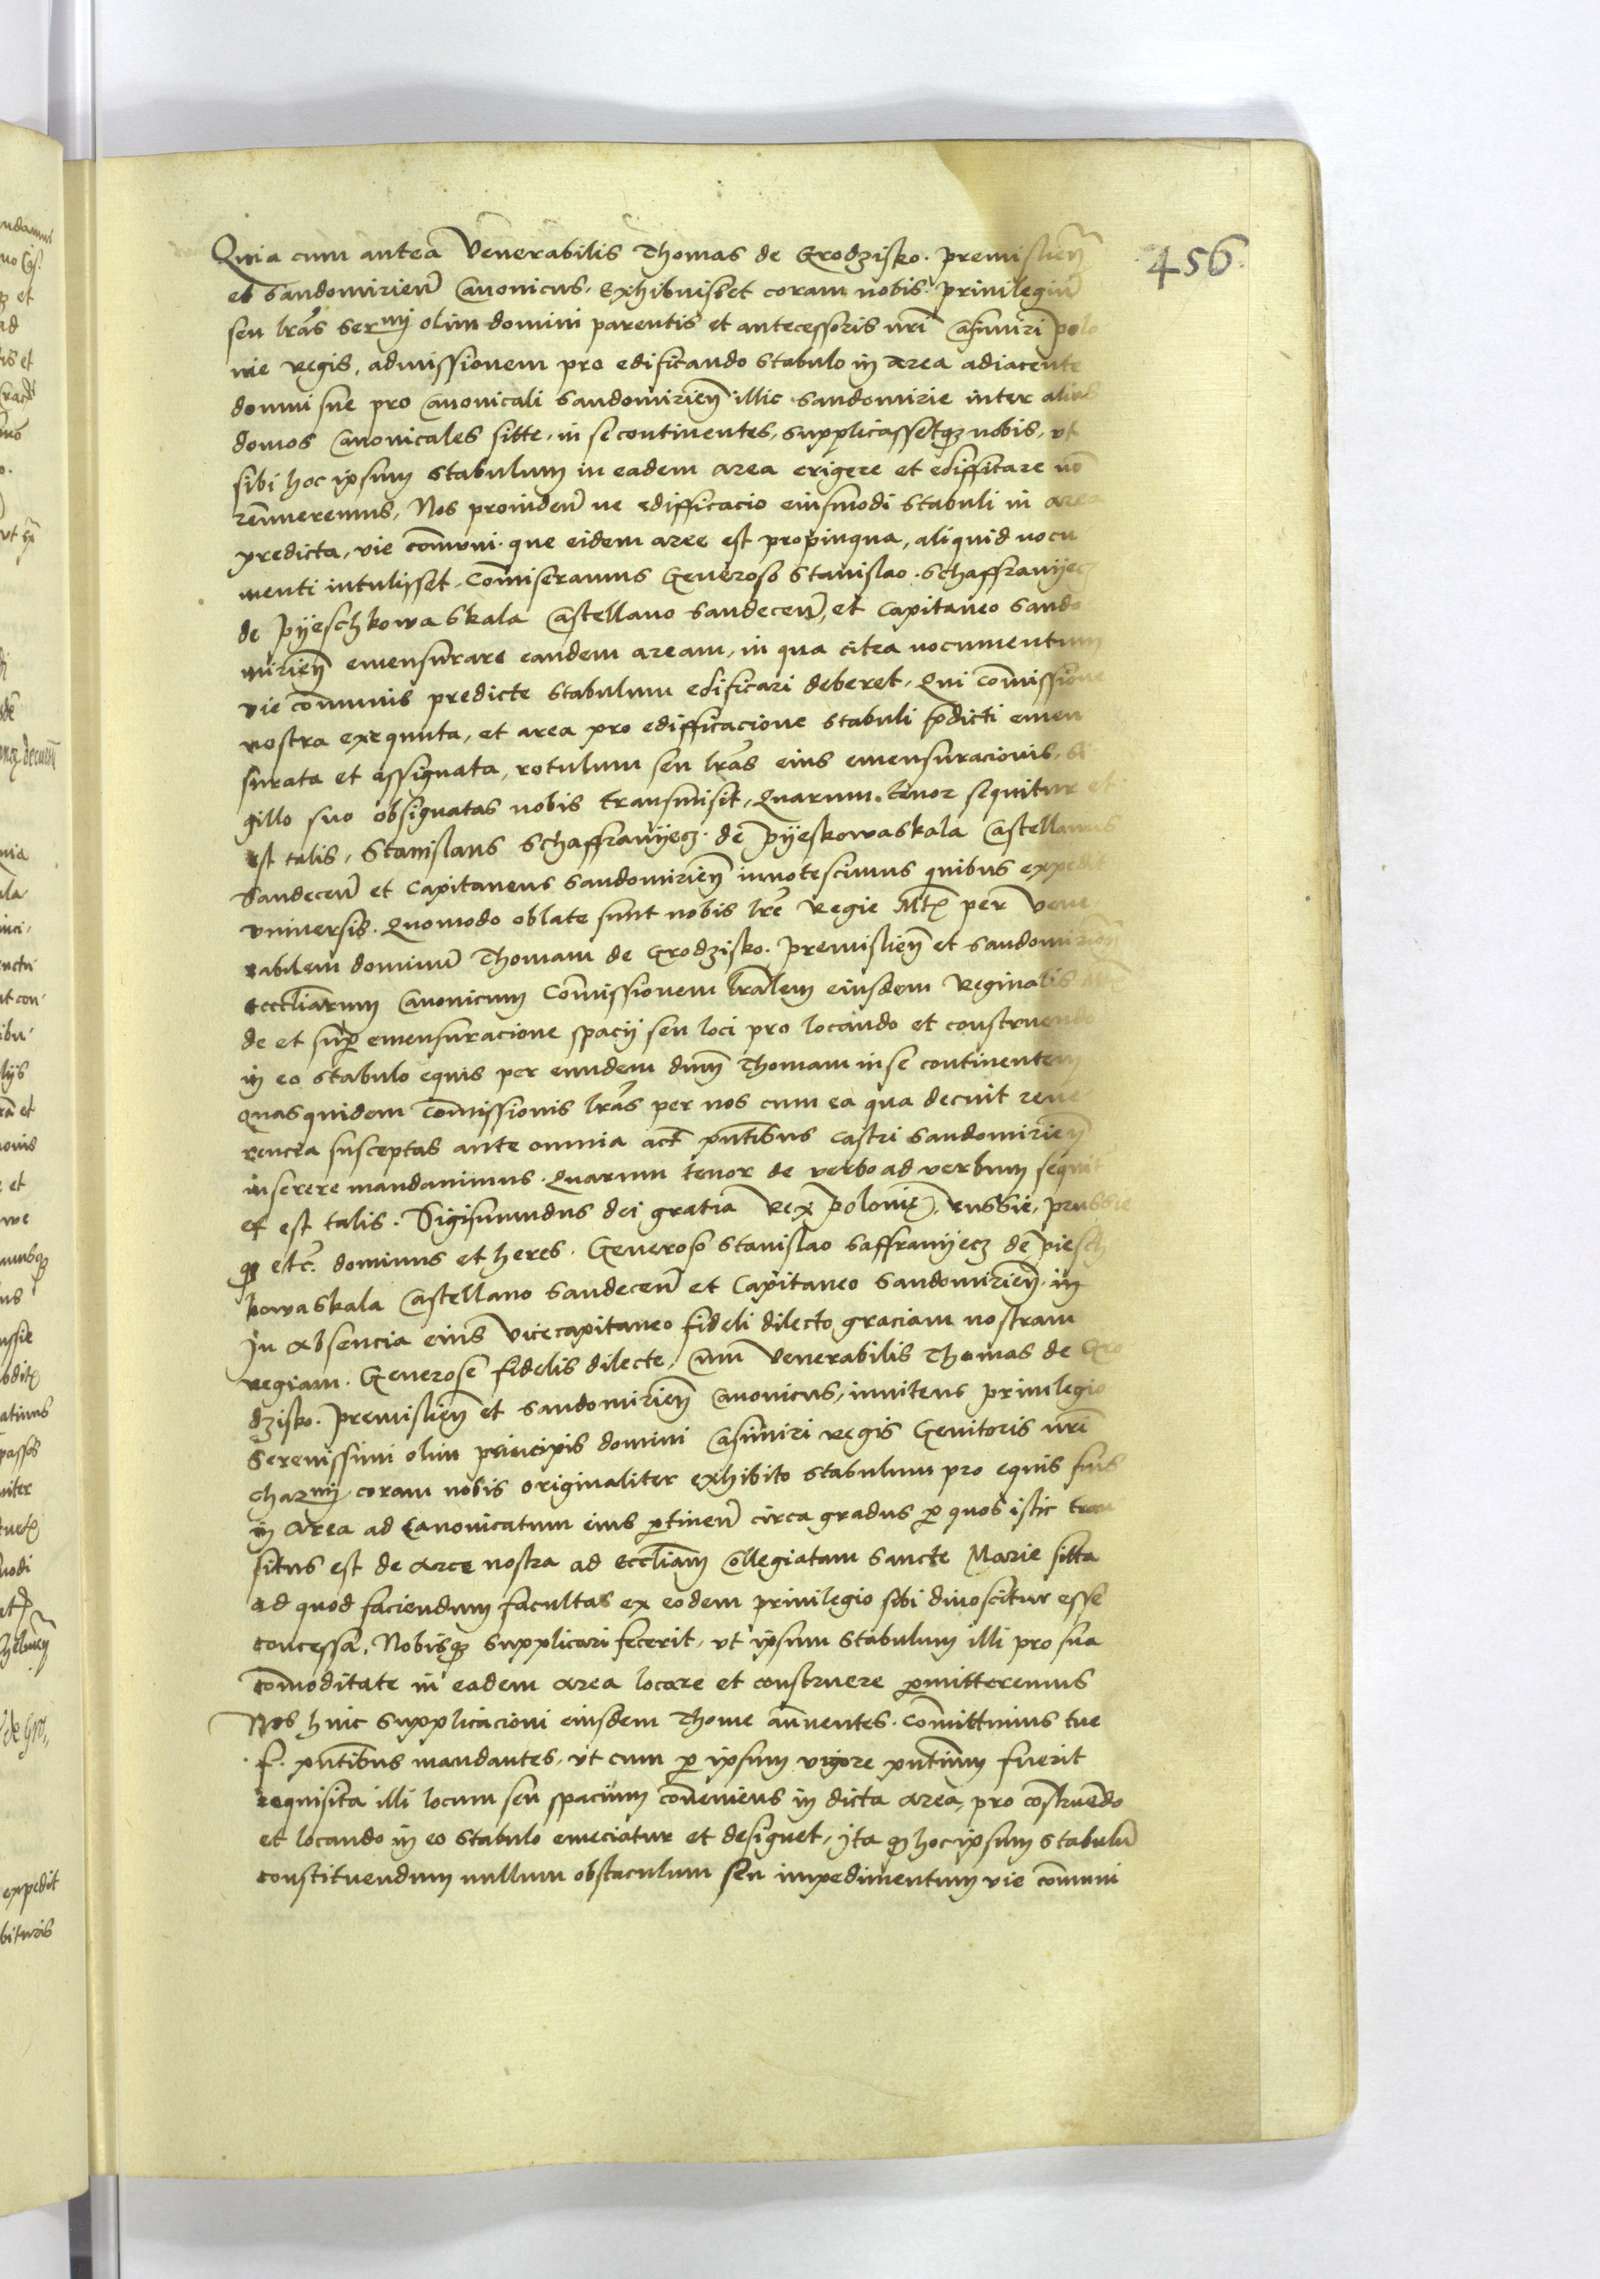 456.
Quia cum antea Venerabilis Thomas de Grodzisko. premislień
et Sandomirień Canonicus, Exhibuisset coram nobis privilegiū
seu lras sermi olim domini parentis et antecessoris nri Casimiri polo
nie regis, admissionem pro edificando stabulo in area adiacente
domui sue pro Canonicali Sandomirień illic Sandomirie inter alias
domos Canonicales sitte, in se continentes, supplicassetqz nobis, vt
sibi hoc ipsum stabulum in eadem area erigere et ediffitare nō
rēnueremus, Nos proinden̄ ne edifficacio eiusmodi stabuli in area
predicta, vie com̄uni que eidem aree est propinqua, aliquid nocu
menti intulisset, Com̄iseramus Generoso Stanislao Schaffranyecz
de Pyeschkowa Skala Castellano Sandeceń, et Capitaneo Sando
mirień emensurare eandem aream, in qua citra nocumentum
vie com̄unis predicte stabulum edificari deberet, Qui com̄issione
nostra exequuta, et area pro edifficacione stabuli p̄dicti emen
surata et assignata, rotulum seu lras eius emensuracionis, si
gillo suo obsignatas nobis transmisit, Quarum tenor sequitur et
est talis, Stanislaus Schaffranyecz de Pyeskowaskala Castellanus
Sandeceń et Capitaneus Sandomirień innotescimus quibus expedit
vniversis. Quomodo oblate sunt nobis lre Regie Mts per Vene
rabilem dominū Thomam de Grodzisko. premislień et Sandomirień
eccliarum Canonicum Com̄issionem lralem eiusdem Reginalis Mts
de et sup emensuracione spacij seu loci pro locando et construendo
in eo stabulo equis per eundem dnm Thomam in se continentem
quasquidem com̄issionis lras per nos cum ea qua decuit reve
rencia susceptas ante omnia act pntibus castri Sandomirień
inserere mandavimus. Quarum tenor de verbo ad verbum sequit
et est talis. Sigismundus dei gratia Rex Polonie, russie, prussie
qz etc. dominus et heres. Generoso Stanislao Saffranyecz de piesch
kowaskala Castellano Sandeceń et Capitaneo Sandomirień. in
In absencia eius vicecapitaneo fideli dilecto graciam nostram
regiam. Generose fidelis dilecte, Cum Venerabilis Thomas de Gro
dzisko. premislień et Sandomirień Canonicus, innitens privilegio
Serenissimi olim principis domini Casimiri regis Genitoris nri
charmi coram nobis originaliter exhibito stabulum pro equis suis
in area ad Canonicatum eius ptinen̄ circa gradus p quos istic tran
situs est de arce nostra ad eccliam Collegiatam Sancte Marie sitta
ad quod faciendum facultas ex eodem privilegio sibi dinoscitur esse
concessa, Nobisqz supplicari fecerit, vt ipsum stabulum illi pro sua
com̄oditate in eadem area locare et construere pmitteremus
Nos huic supplicacioni eiusdem Thome an̄uentes. Com̄ittimus tue
f. pntibus mandantes, vt cum p ipsum vigore pntium fuerit
requisita illi locum seu spacium conveniens in dicta area, pro constrūedo
et locando in eo stabulo emeciatur et designet, ita q hoc ipsum stabulū
constituendum nullum obstaculum seu impedimentum vie com̄uni